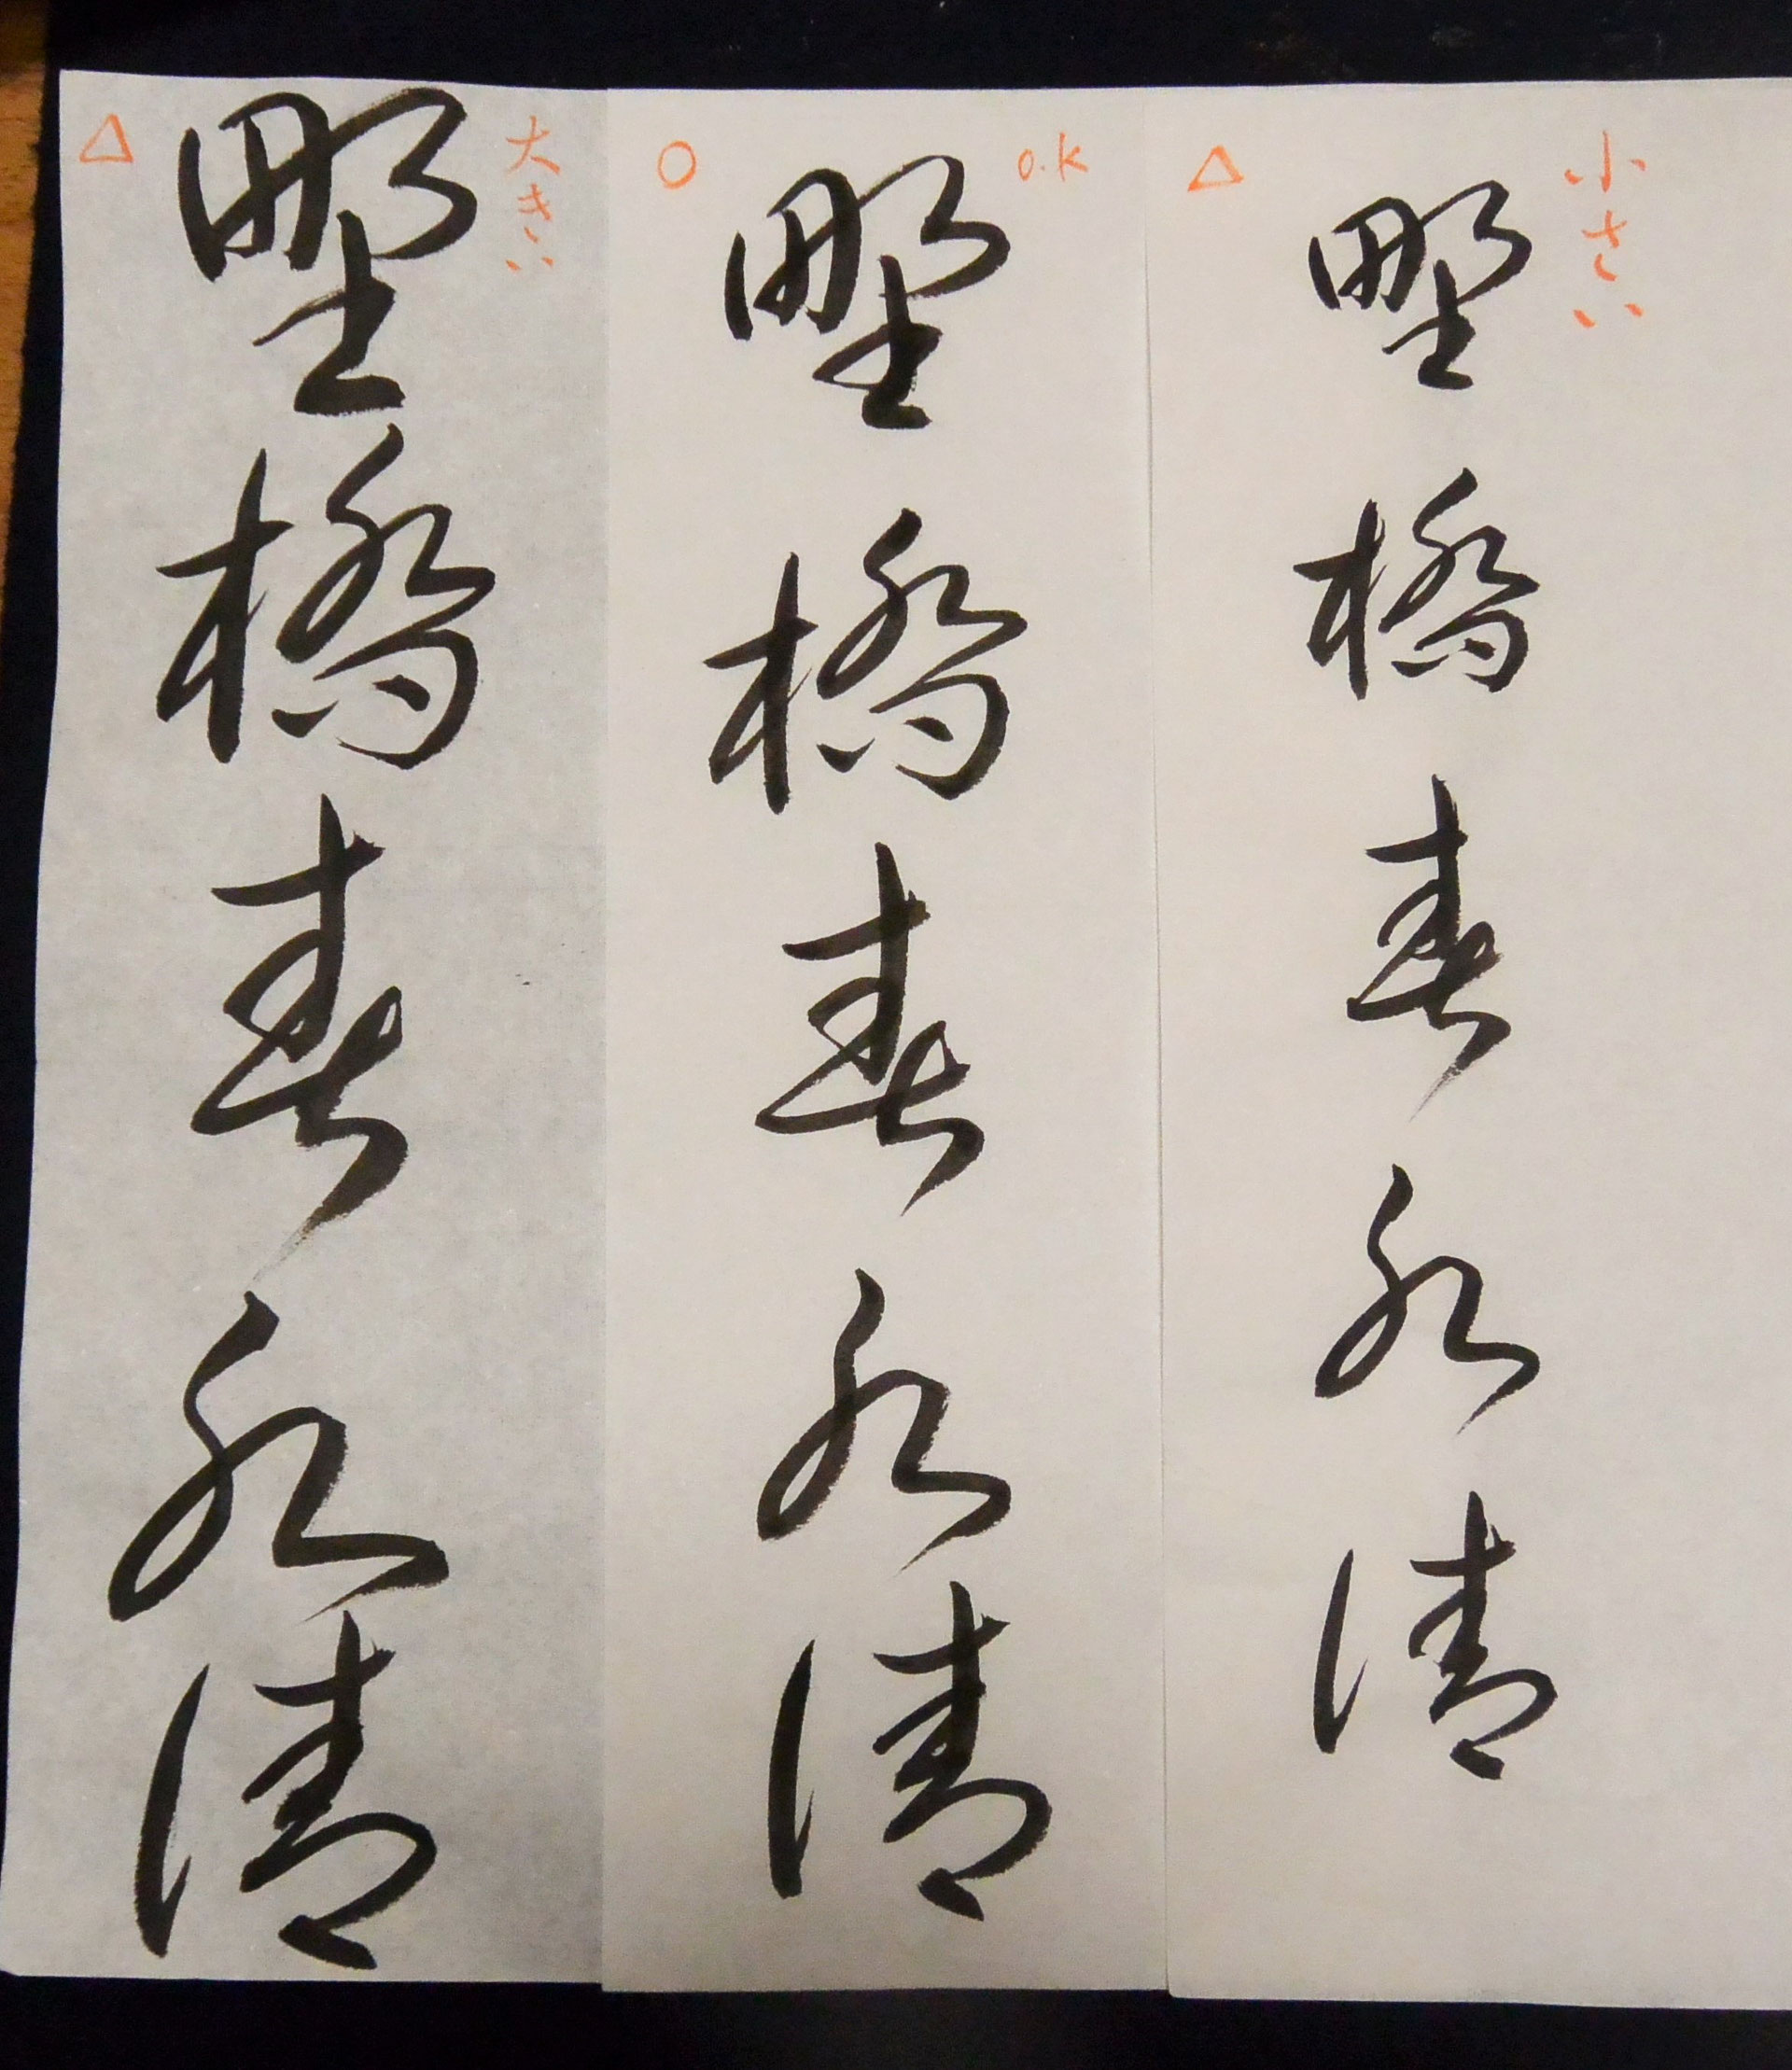 小さい
野橋春水清
△
o.k
野橋春水清
○
大きい
野橋春水清
△